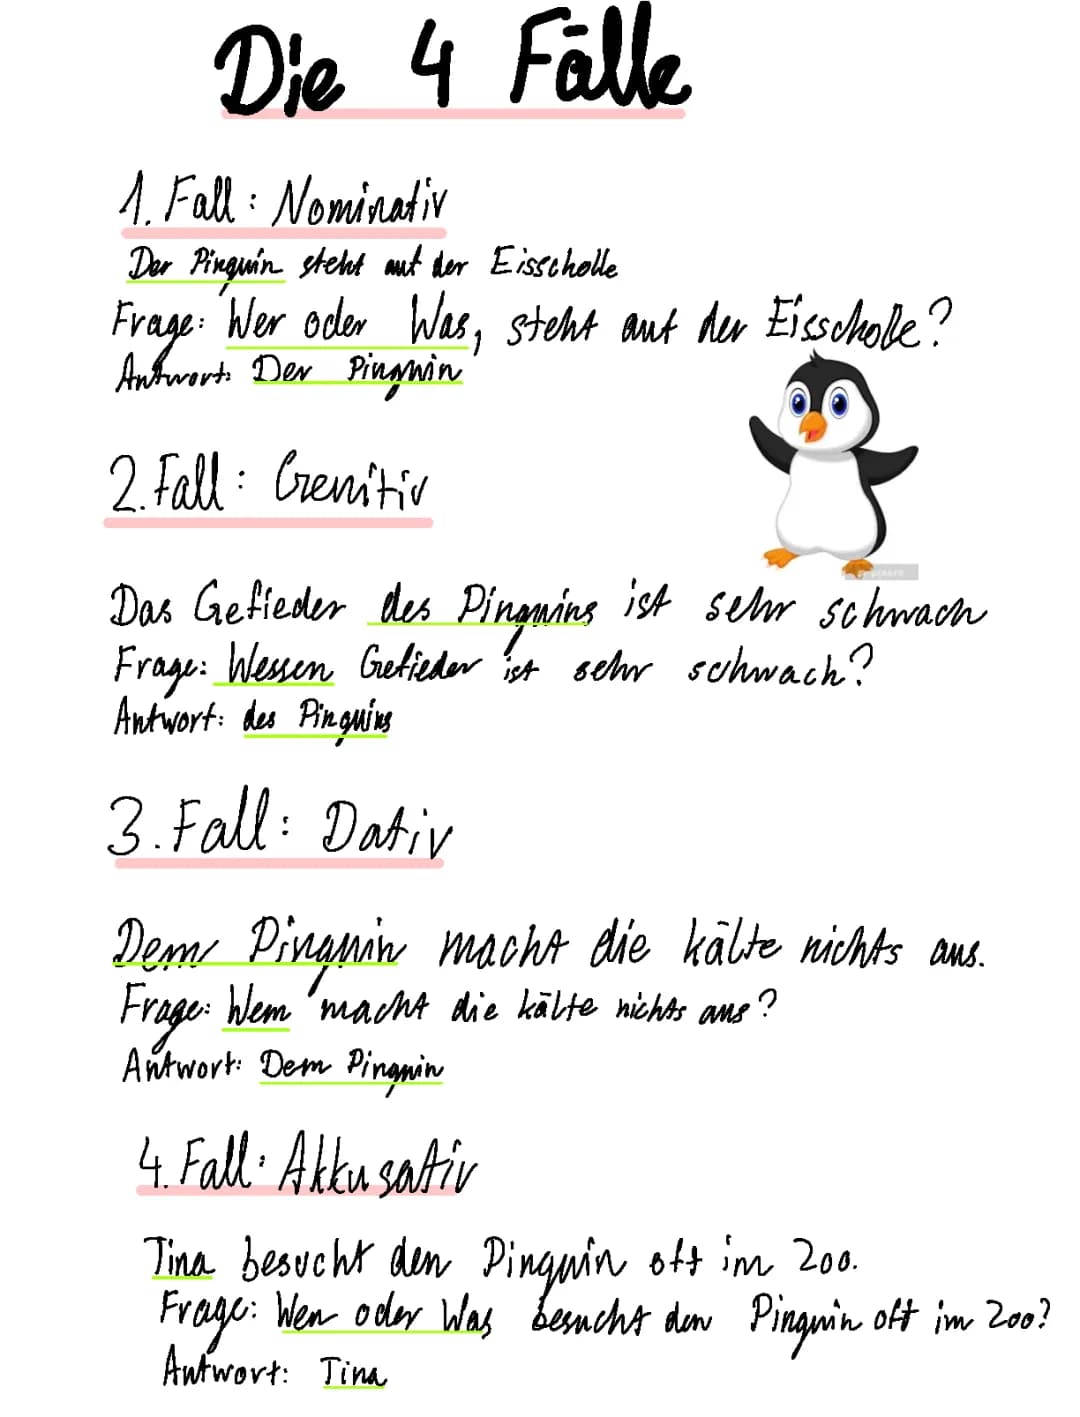 Die 4 Fälle
1. Fall: Nominativ
Der Pinguin steht auf der Eisscholle
Frage: Wer oder Was, steht auf der Eisscholle?
Antwort: Der Pinguin
2. Fall: Genitiv
Das Gefieder des Pinguins ist sehr schwach
Frage: Wessen Gefieder ist sehr schwach?
Antwort: des Pinguins
3. Fall: Dativ
Dem Pinguin macht die kälte nichts aus.
Frage: Wem macht die kälte nichts aus?
Antwort: Dem Pinguin
4. Fall: Akkusativ
Tina besucht den Pinguin oft im Zoo.
Frage: Wen oder Was besucht den Pinguin oft im Zoo?
Antwort: Tina